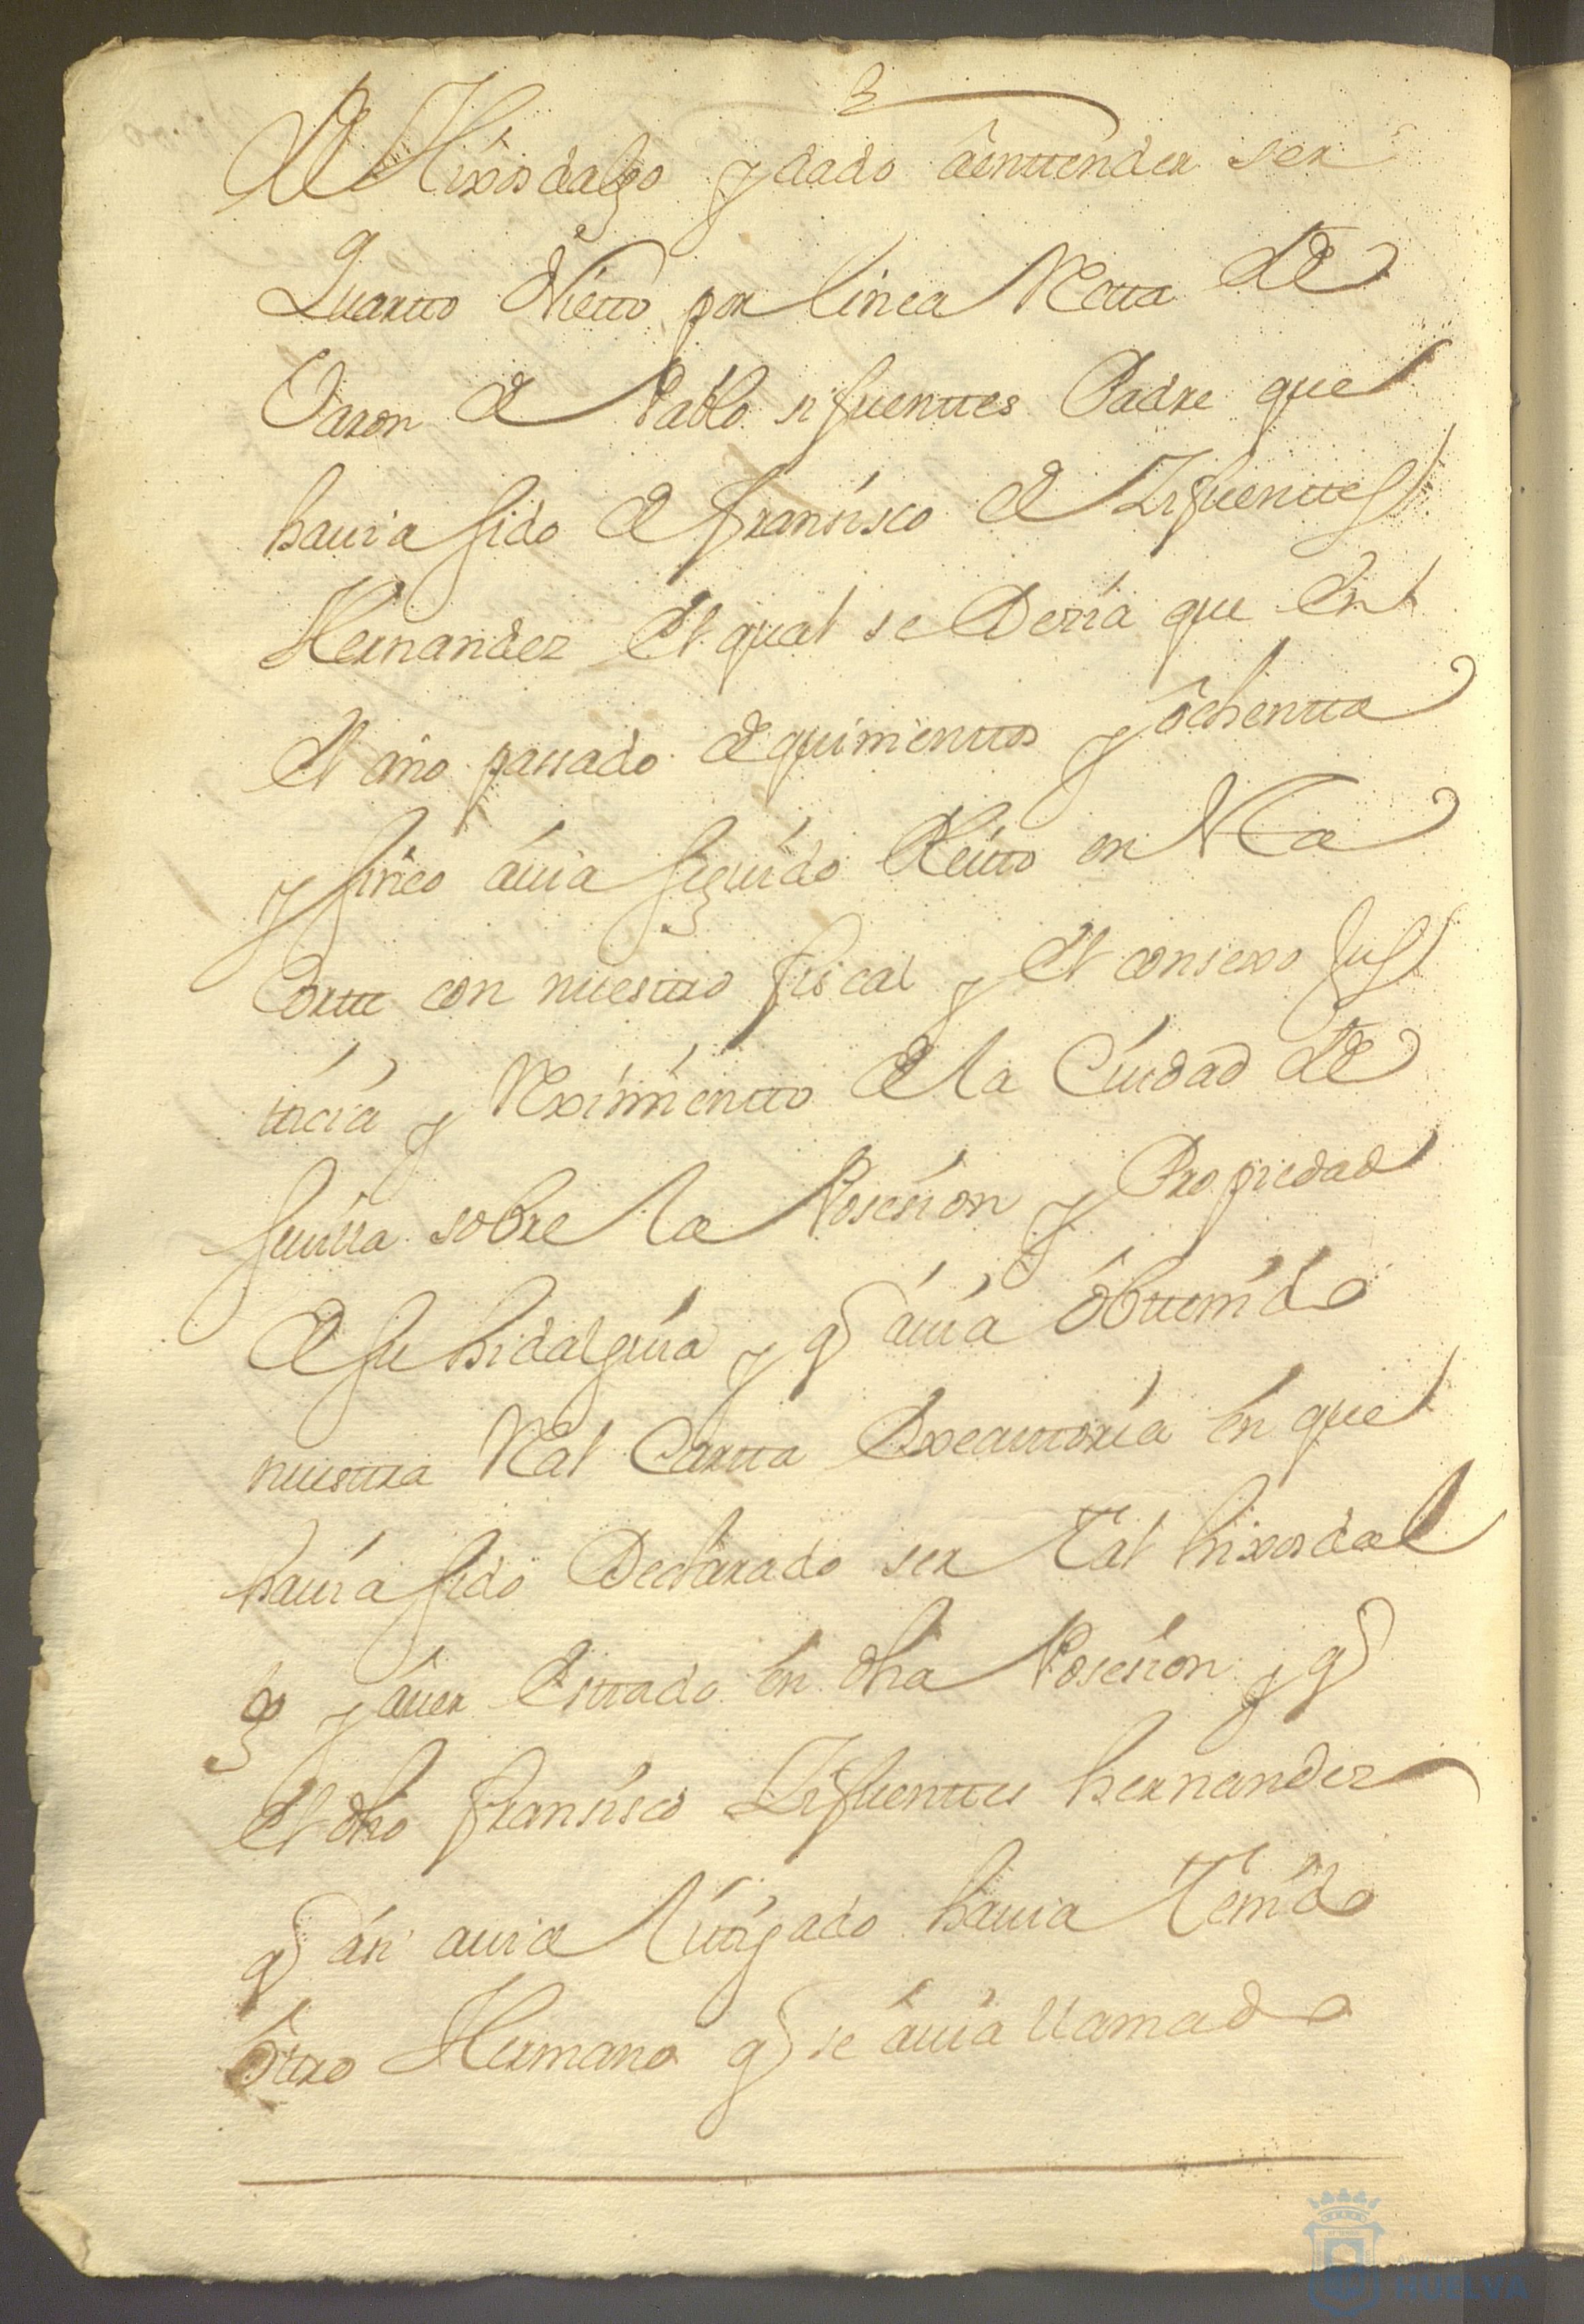 de Hixosdalgo y dado âenttender ser
Quartto Nietto por linea Retta de
Varon de Pablo sifuenttes Padre que
hauia sido de fransisco de Sifuenttes
Hernandez el qual se Dezia que en
el año passado de quinienttos y ôchentta
y sinco auia seguido Pleitto en Nra
Cortte con nuesttro fiscal y el consexo Jus
ticia y Reximientto de la Ciudad de
seuilla sobre la Posesion y Propiedad
de su hidalguia y q auia ôbttenido
nuesttra Real Cartta Executtoria en que
hauia sido Declarado ser Tal hixosdal
go y auer Esttado en dha Posesion y q
el dho fransisco Sifuenttes hernandez
q asi auia littigado hauia Tenido
ôttro Hermano q se auia llamado
HUELVA